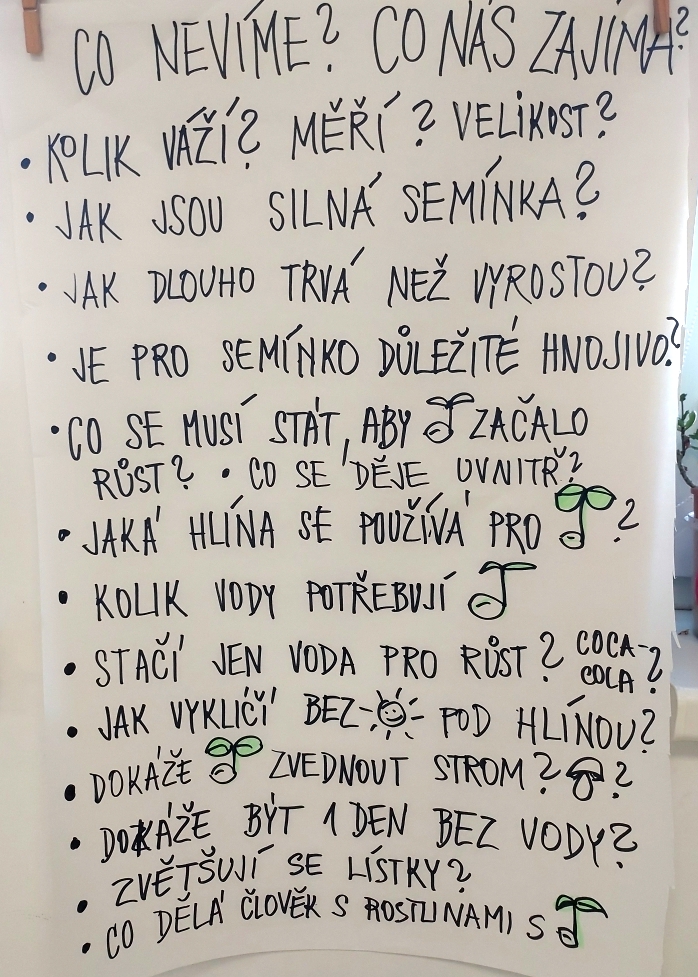 CO NEVÍME? CO NÁS ZAJÍMÁ?
• KOLIK VÁŽÍ? MĚŘÍ? VELIKOST?
• JAK JSOU SILNÁ SEMÍNKA?
• JAK DLOUHO TRVÁ NEŽ VYROSTOU?
• JE PRO SEMÍNKO DŮLEŽITÉ HNOJIVO?
• CO SE MUSÍ STÁT, ABY ZAČALO
RŮST? • CO SE DĚJE UVNITŘ?
• JAKÁ HLÍNA SE POUŽÍVÁ PRO ?
• KOLIK VODY POTŘEBUJÍ
• STAČÍ JEN VODA PRO RŮST? COCA-COLA?
• JAK VYKLIČÍ BEZ POD HLÍNOU?
• DOKÁŽE ZVEDNOUT STROM? ?
• DOKÁŽE BÝT 1 DEN BEZ VODY?
• ZVĚTŠUJÍ SE LÍSTKY?
• CO DĚLÁ ČLOVĚK S ROSTLINAMI S